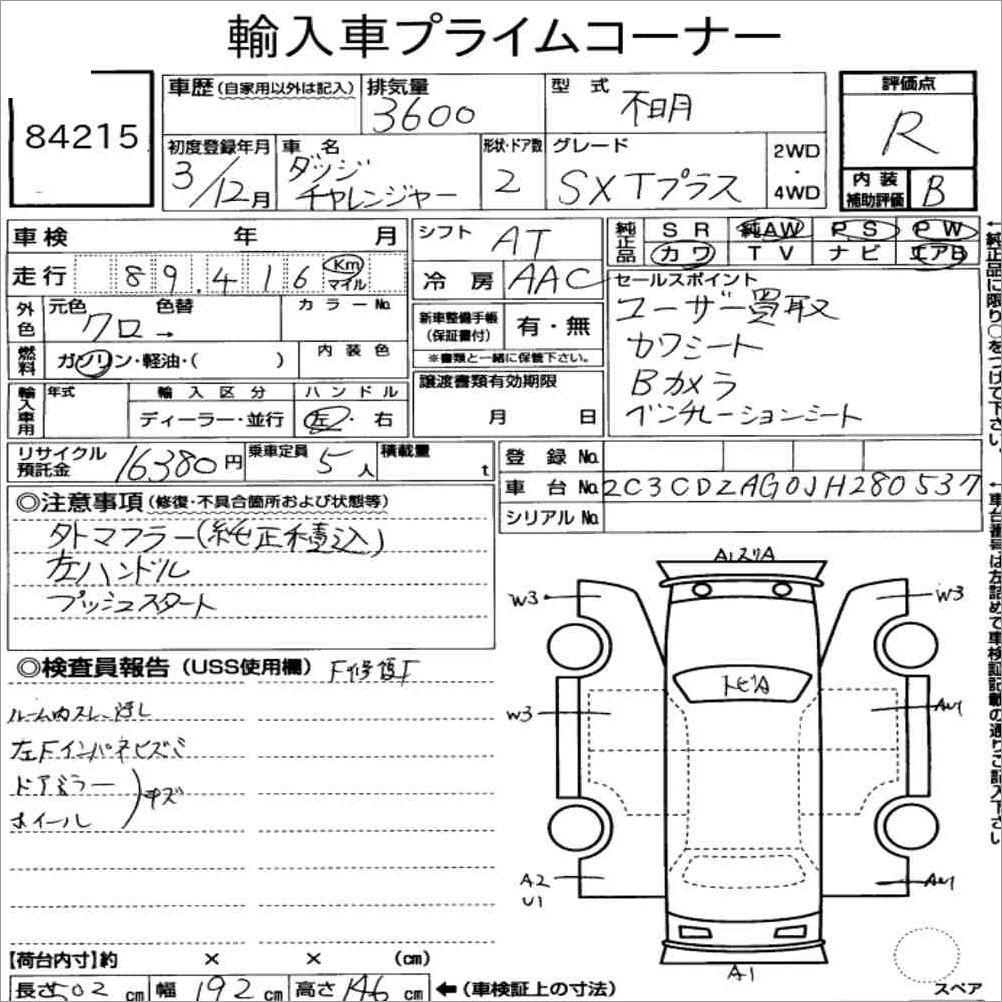 輸入車プライムコーナー
84215
車歴 (自家用以外は記入) 排気量 3600 型式 不明 評価点 R
初度登録年月 3/12月 車名 ダッジ チャレンジャー 形状・ドア数 2 グレード SXTプラス 2WD・4WD 内装補助評価 B
車検 年 月 シフト AT 純正品 SR 純AW PS PW
走行 89.416 Km マイル 冷房 AAC カワ TV ナビ エアB
外色 元色 クロ → 色替 カラーNo. 新車整備手帳(保証書付) 有・無
※書類と一緒に保管下さい。
燃料 ガソリン・軽油・( ) 内装色 譲渡書類有効期限 月 日
輸入車用 年式 輸入区分 ディーラー・並行 ハンドル 左・右
セールスポイント
ユーザー買取
カワシート
Bカメラ
ベンチレーションシート
リサイクル預託金 16380円 乗車定員 5人 積載量 t
登録No.
車台No. 2C3CDZAG0JH280537
シリアルNo.
◎注意事項 (修復・不具合箇所および状態等)
タトマフラー(純正積込)
左ハンドル
プッシュスタート
◎検査員報告 (USS使用欄)
ルーム内スレ、汚レ
左Fインパネヒズミ
ドアミラー
ホイール
キズ
A1スリA
W3 W3
トビA
W3
A2
U1
A1
スペア
【荷台内寸】約 × × (cm)
長さ 502 cm 幅 192 cm 高さ 146 cm ←(車検証上の寸法)
←純正品に限り○をつけて下さい。
←車台番号は左詰めで車検証記載の通りご記入下さい